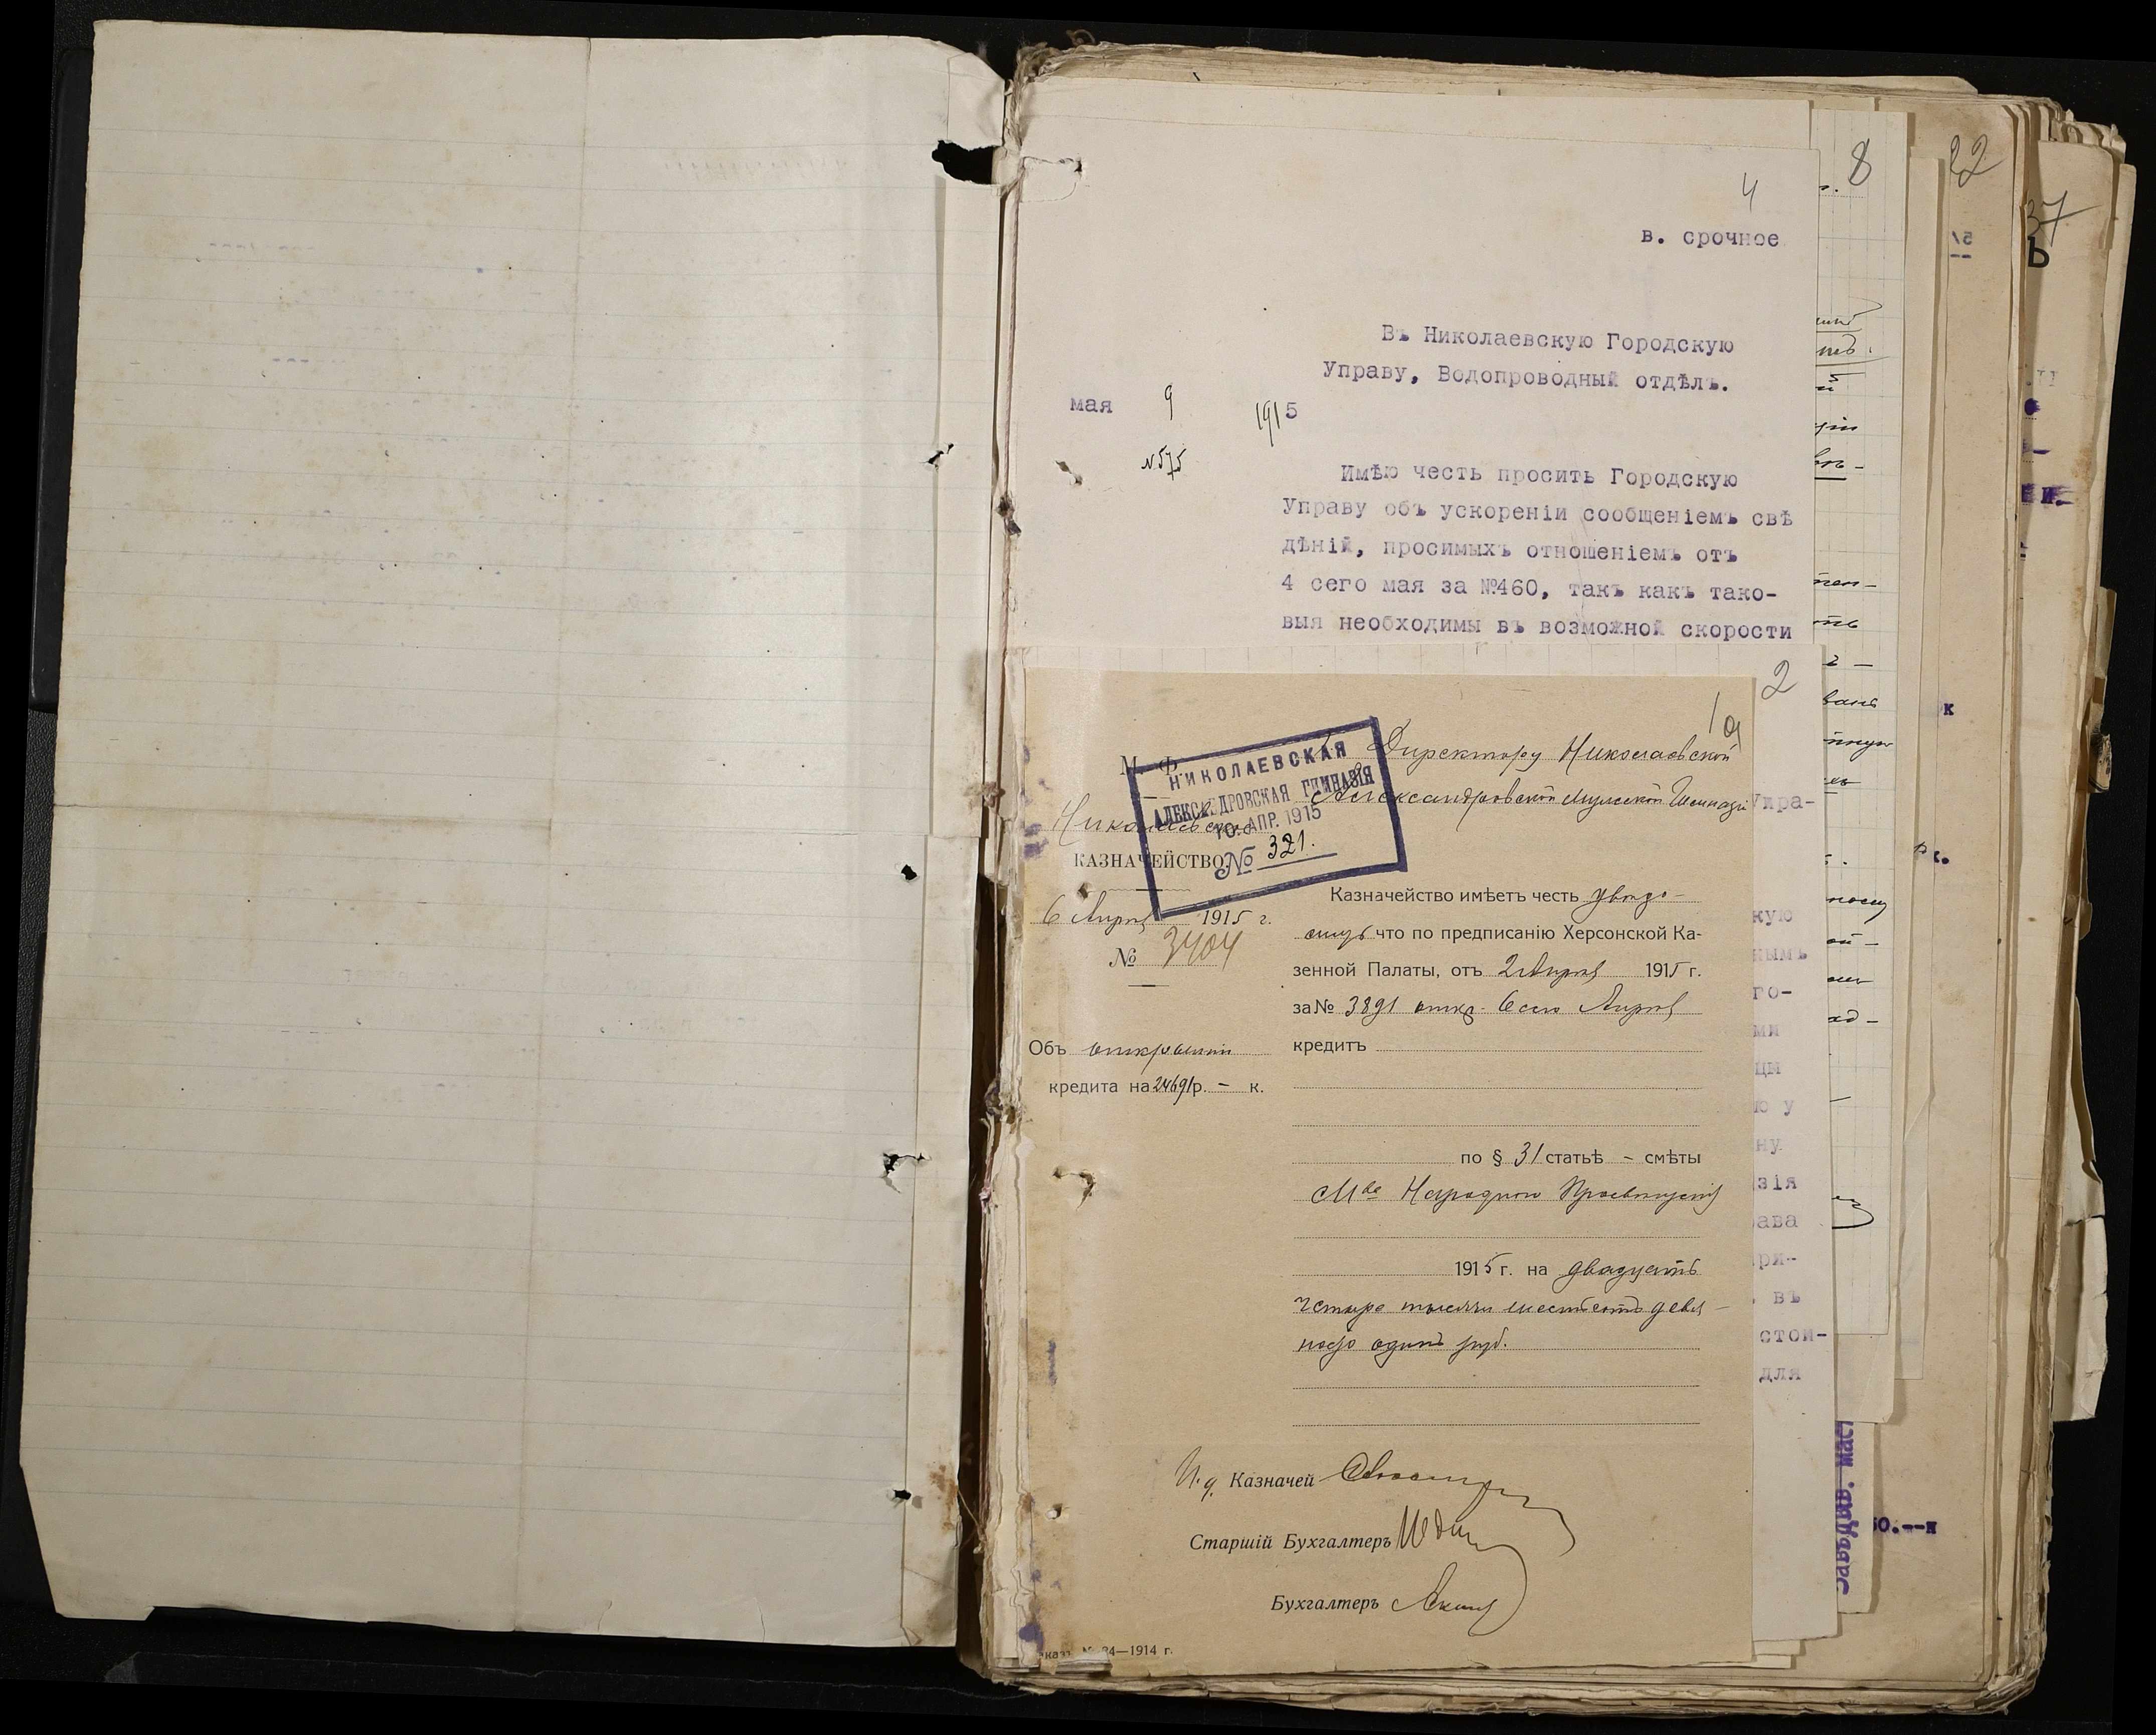 4
в. срочное
Въ Николаевскую Городскую
Управу, Водопроводный отдѣлъ.
мая 9 1915
№575
Имѣю честь просить Городскую
Управу объ ускореніи сообщеніемъ свѣ
дѣній, просимыхъ отношеніемъ отъ
4 сего мая за №460, такъ какъ тако-
выя необходимы въ возможной скорости
2
1а
М. Ф.
Директору Николаевской
Александровской мужской Гимназіи
НИКОЛАЕВСКАЯ
АЛЕКСАНДРОВСКАЯ ГИМНАЗІЯ
10. АПР. 1915
№ 321.
Николаевское
КАЗНАЧЕЙСТВО
6 Апрѣля 1915 г.
№ 3404
Объ открытіи
кредита на 24691 р. – к.
Казначейство имѣетъ честь увѣдо-
мить что по предписанію Херсонской Ка-
зенной Палаты, отъ 2 Апрѣля 1915 г.
за № 3891 откр. 6 сего Апрѣля
кредитъ
по § 31 статьѣ – смѣты
Мва Народнаго Просвѣщенія
1915 г. на двадцать
четыре тысячи шестьсотъ девя-
носто одинъ руб.
И. д. Казначей
Старшій Бухгалтеръ
Бухгалтеръ
4—1914 г.
8
22
37
Ь
Упра-
кую
нымъ
го-
ми
цы
ю у
ну
зія
рава
ри-
въ
стои-
для
к
к.
50.--н